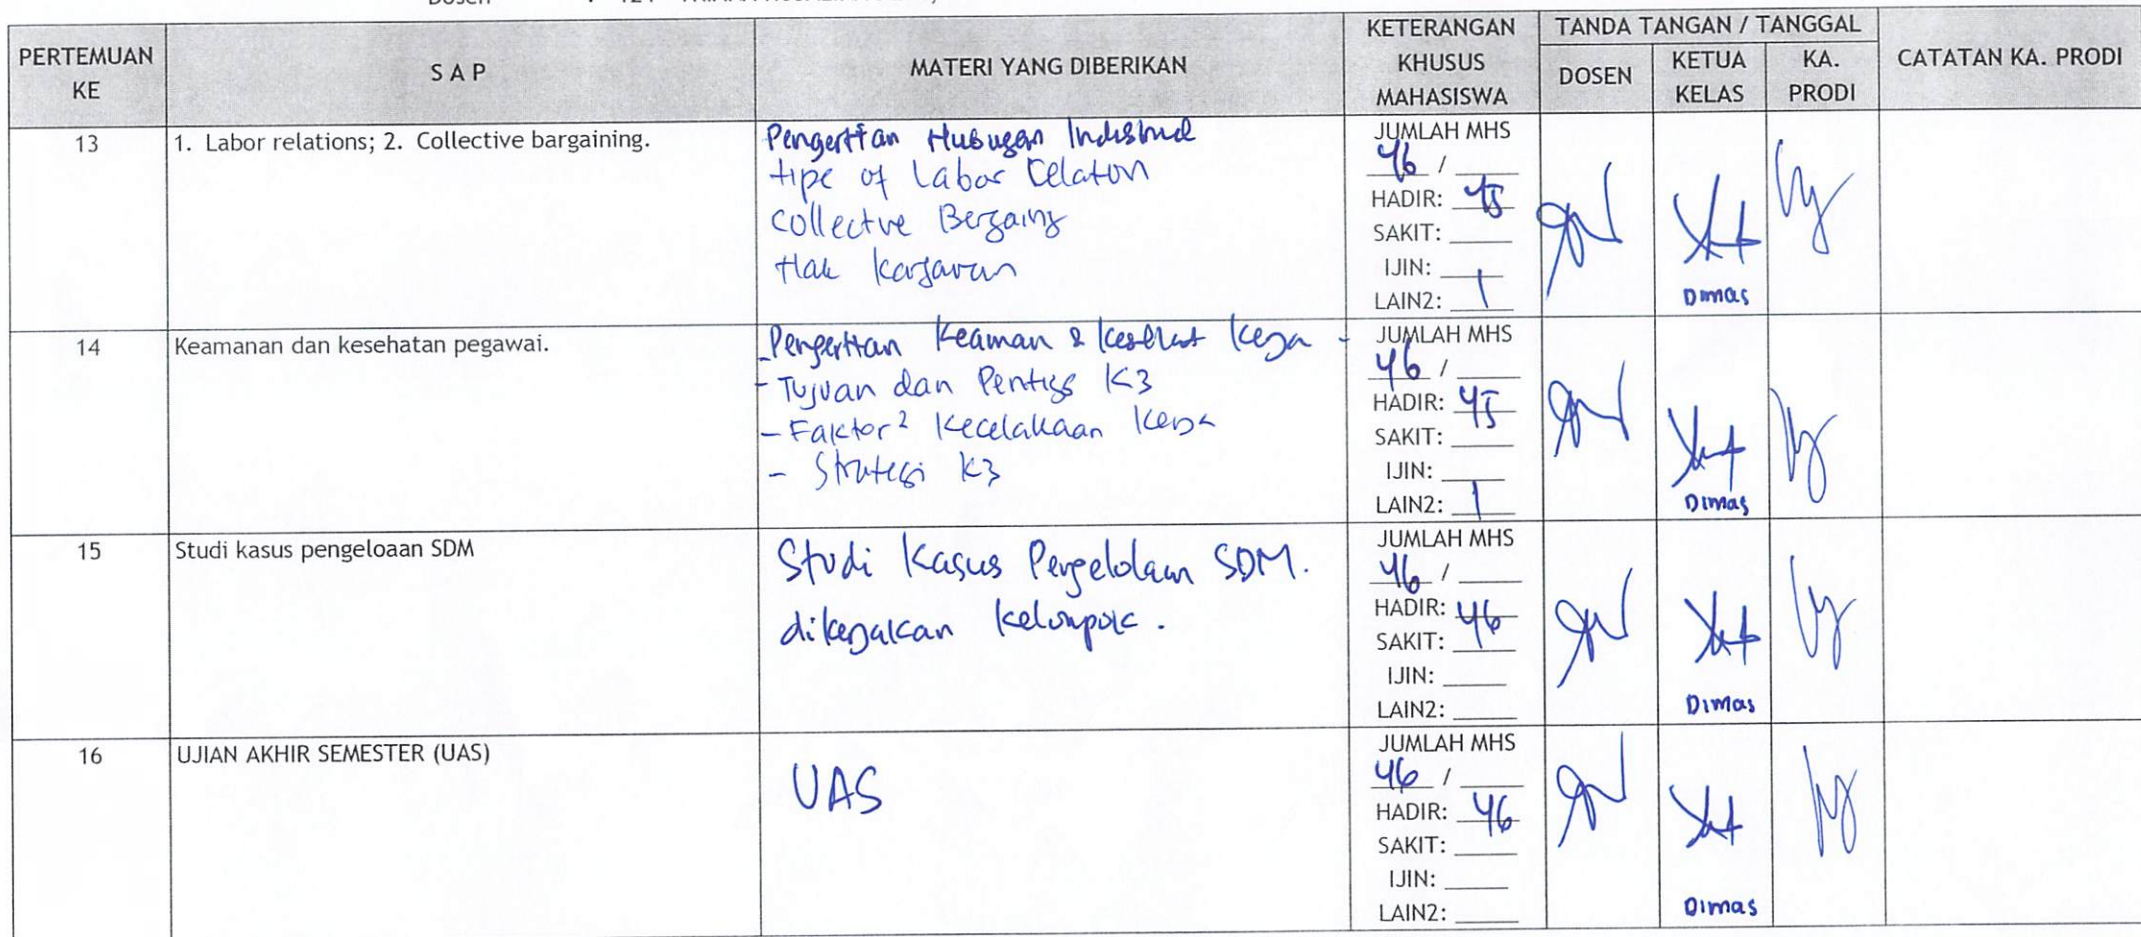 Dosen
PERTEMUAN KE
S A P
MATERI YANG DIBERIKAN
KETERANGAN KHUSUS MAHASISWA
TANDA TANGAN / TANGGAL
DOSEN
KETUA KELAS
KA. PRODI
CATATAN KA. PRODI
13
1. Labor relations; 2. Collective bargaining.
Pengertian Hubugan Industrial
tipe of Labor relation
collective Bergaing
Hak
JUMLAH MHS
46 /
HADIR: 45
SAKIT:
IJIN:
LAIN2: 1
Dimas
14
Keamanan dan kesehatan pegawai.
- Pengertian Keaman & Kesehat Kerja -
- Tujuan dan K3
- Faktor² Kecelakaan Kerja
- Strategi K3
JUMLAH MHS
46 /
HADIR: 45
SAKIT:
IJIN:
LAIN2: 1
Dimas
15
Studi kasus pengeloaan SDM
Studi Kasus Pengelolaan SDM.
dikerjakan kelompok.
JUMLAH MHS
46 /
HADIR: 46
SAKIT:
IJIN:
LAIN2:
Dimas
16
UJIAN AKHIR SEMESTER (UAS)
UAS
JUMLAH MHS
46 /
HADIR: 46
SAKIT:
IJIN:
LAIN2:
Dimas